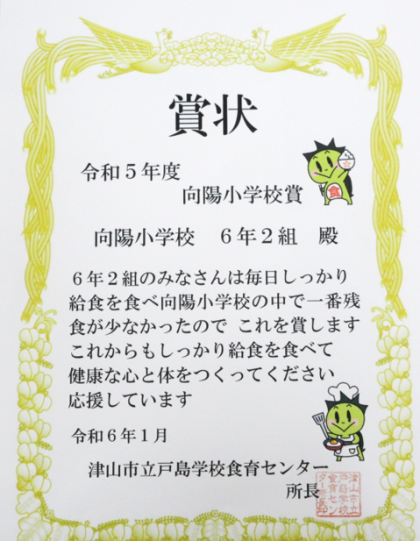 賞状
令和５年度
向陽小学校賞
向陽小学校　６年２組　殿
６年２組のみなさんは毎日しっかり
給食を食べ向陽小学校の中で一番残
食が少なかったので これを賞します
これからもしっかり給食を食べて
健康な心と体をつくってください
応援しています
令和６年１月
津山市立戸島学校食育センター
所長
食